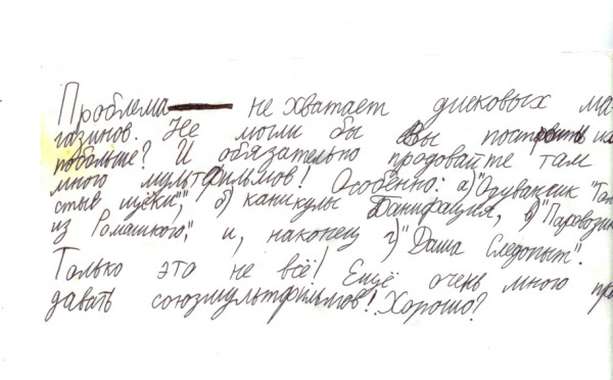 Проблема не хватает дисковых ма
газинов. Не могли бы Вы построить их
побольше? И обязательно продовайте там
много мультфильмов! Особенно: а) "Одуванчик "Тол
стые щёки"", б) каникулы Банифация, в) "Паровозик
из Ромашкого", и, наконец г) "Даша Следопыт".
Только это не всё! Ещё очень много про
давать союзмультфильмов! Хорошо?